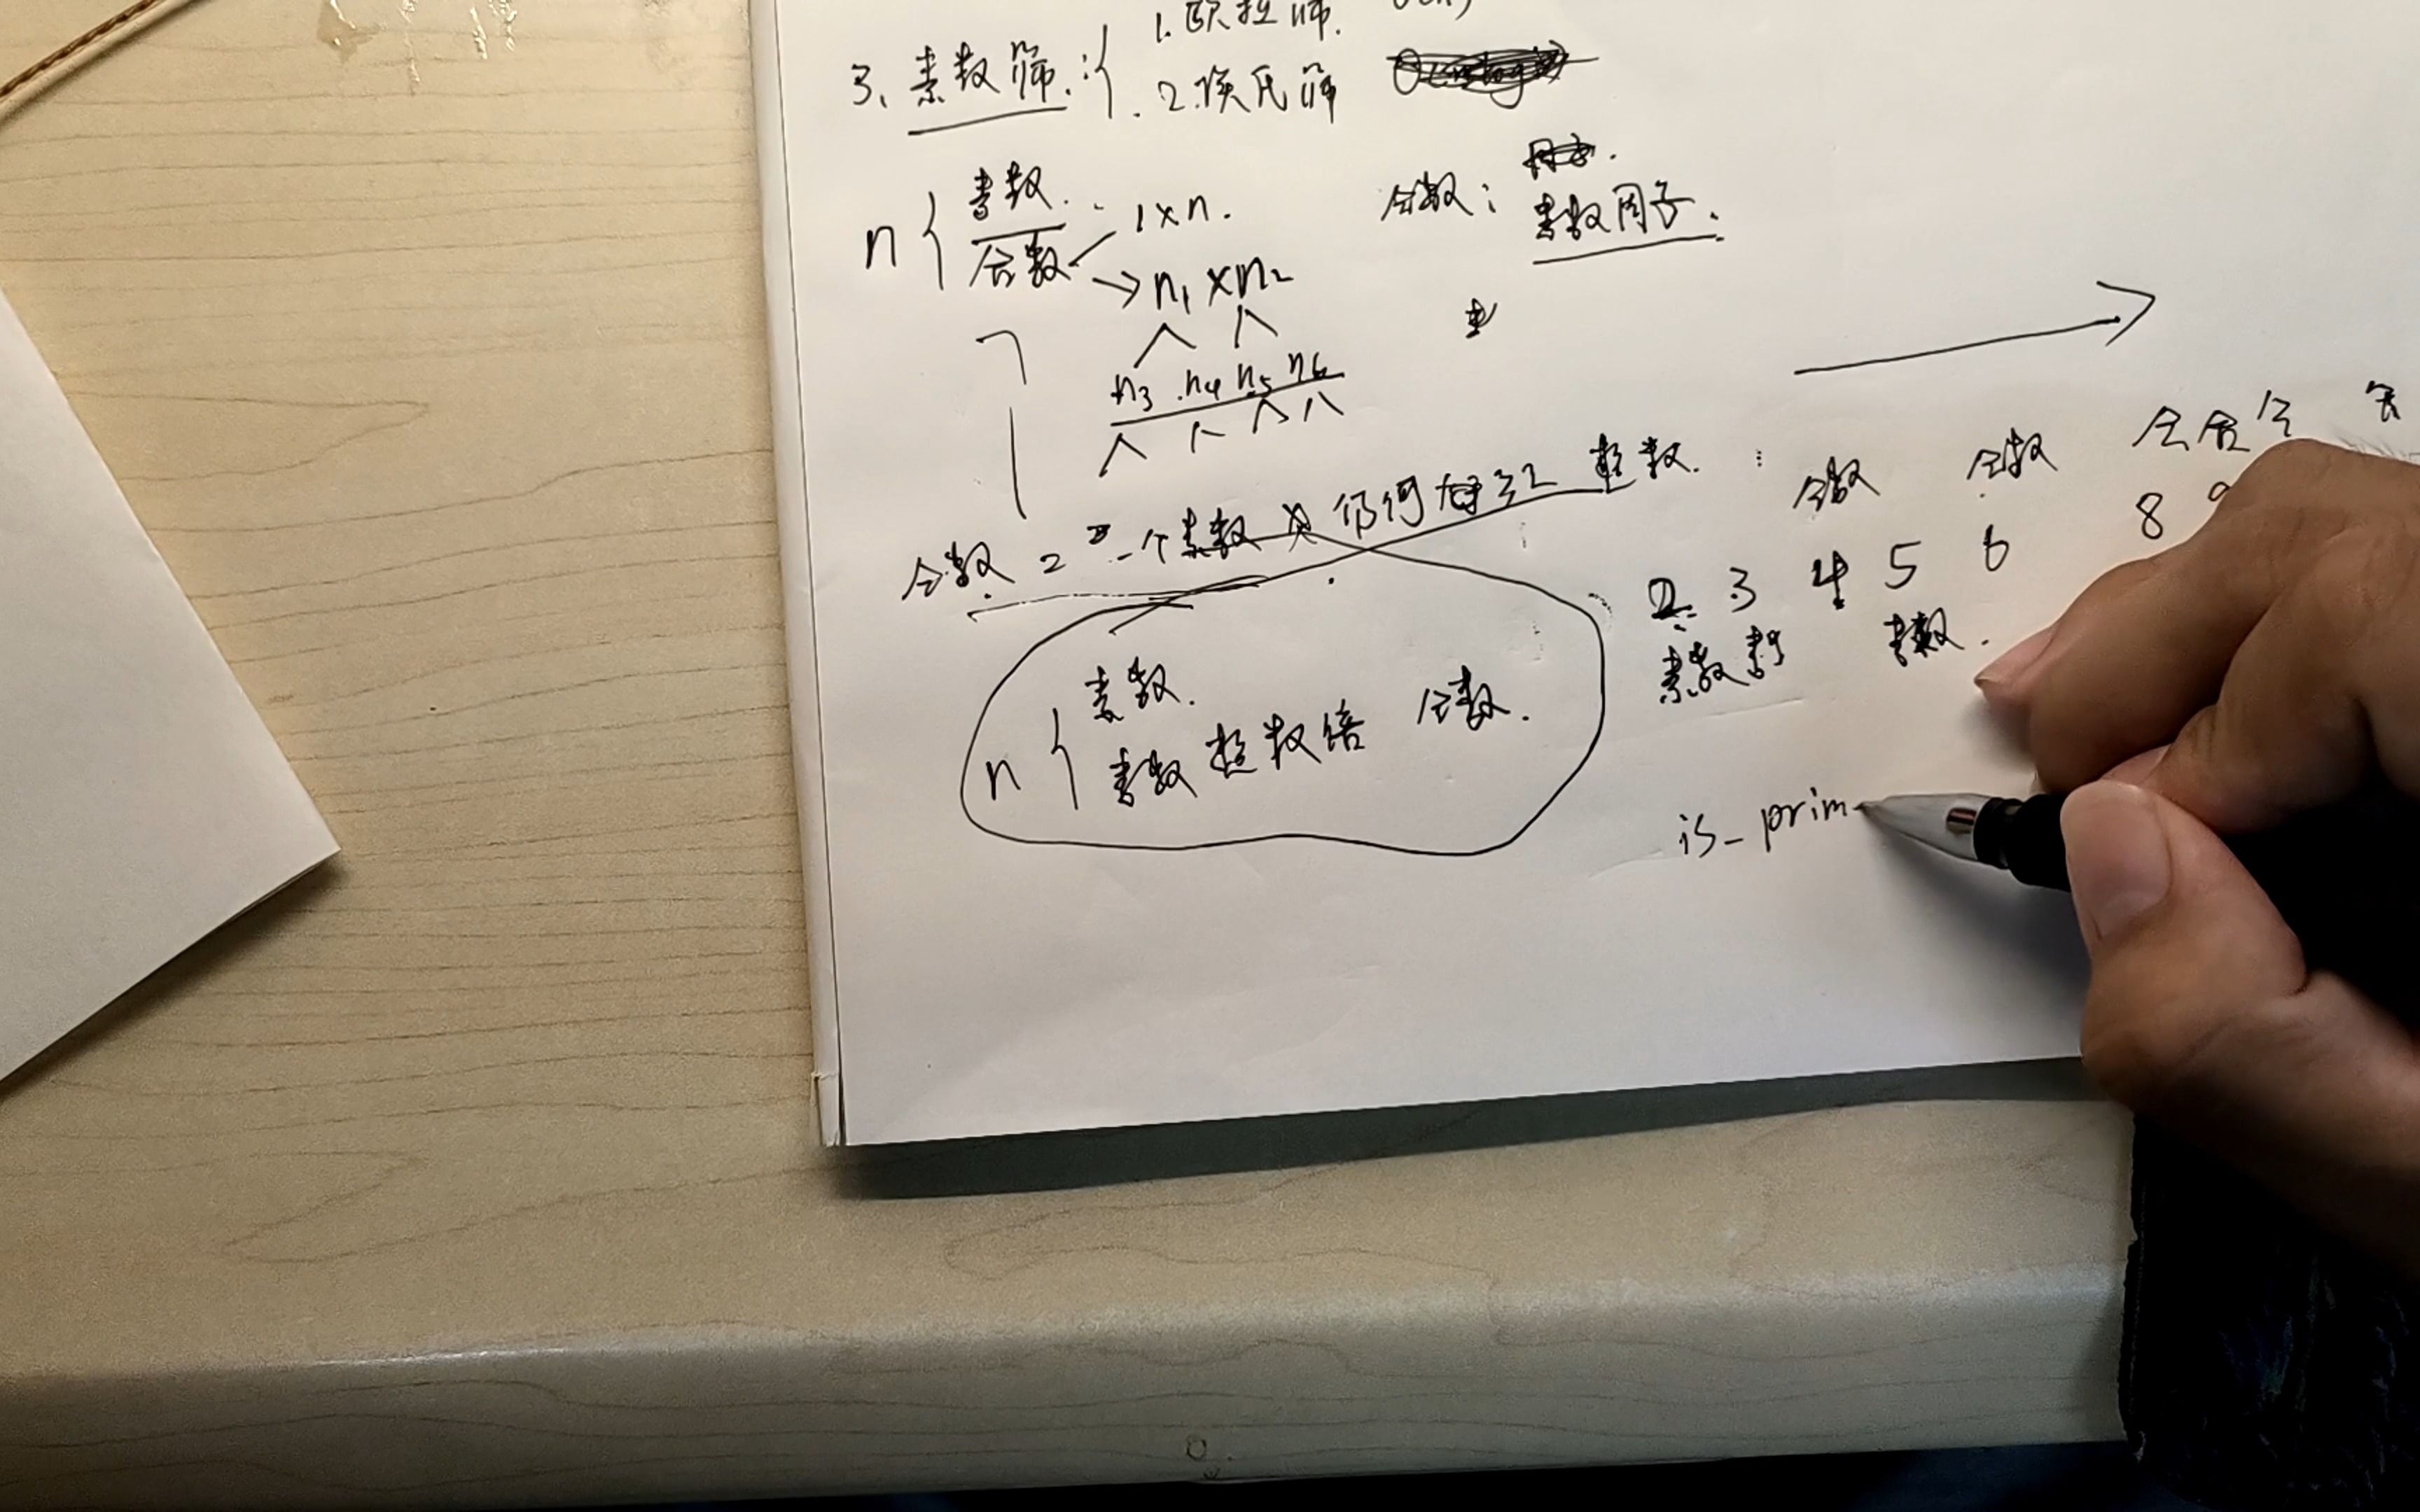 1.欧拉筛.
3、素数筛:
2.埃氏筛
n 素数.
合数
1×n.
→n₁×n₂
n₃ n₄ n₅ n₆
合数:
素数因子.
合数 = 一个素数 × 任何 整数.
n 素数.
素数整数倍 合数.
合数 合数 合合合 合
2 3 4 5 6 8 9
素数 素 素数.
is_prim